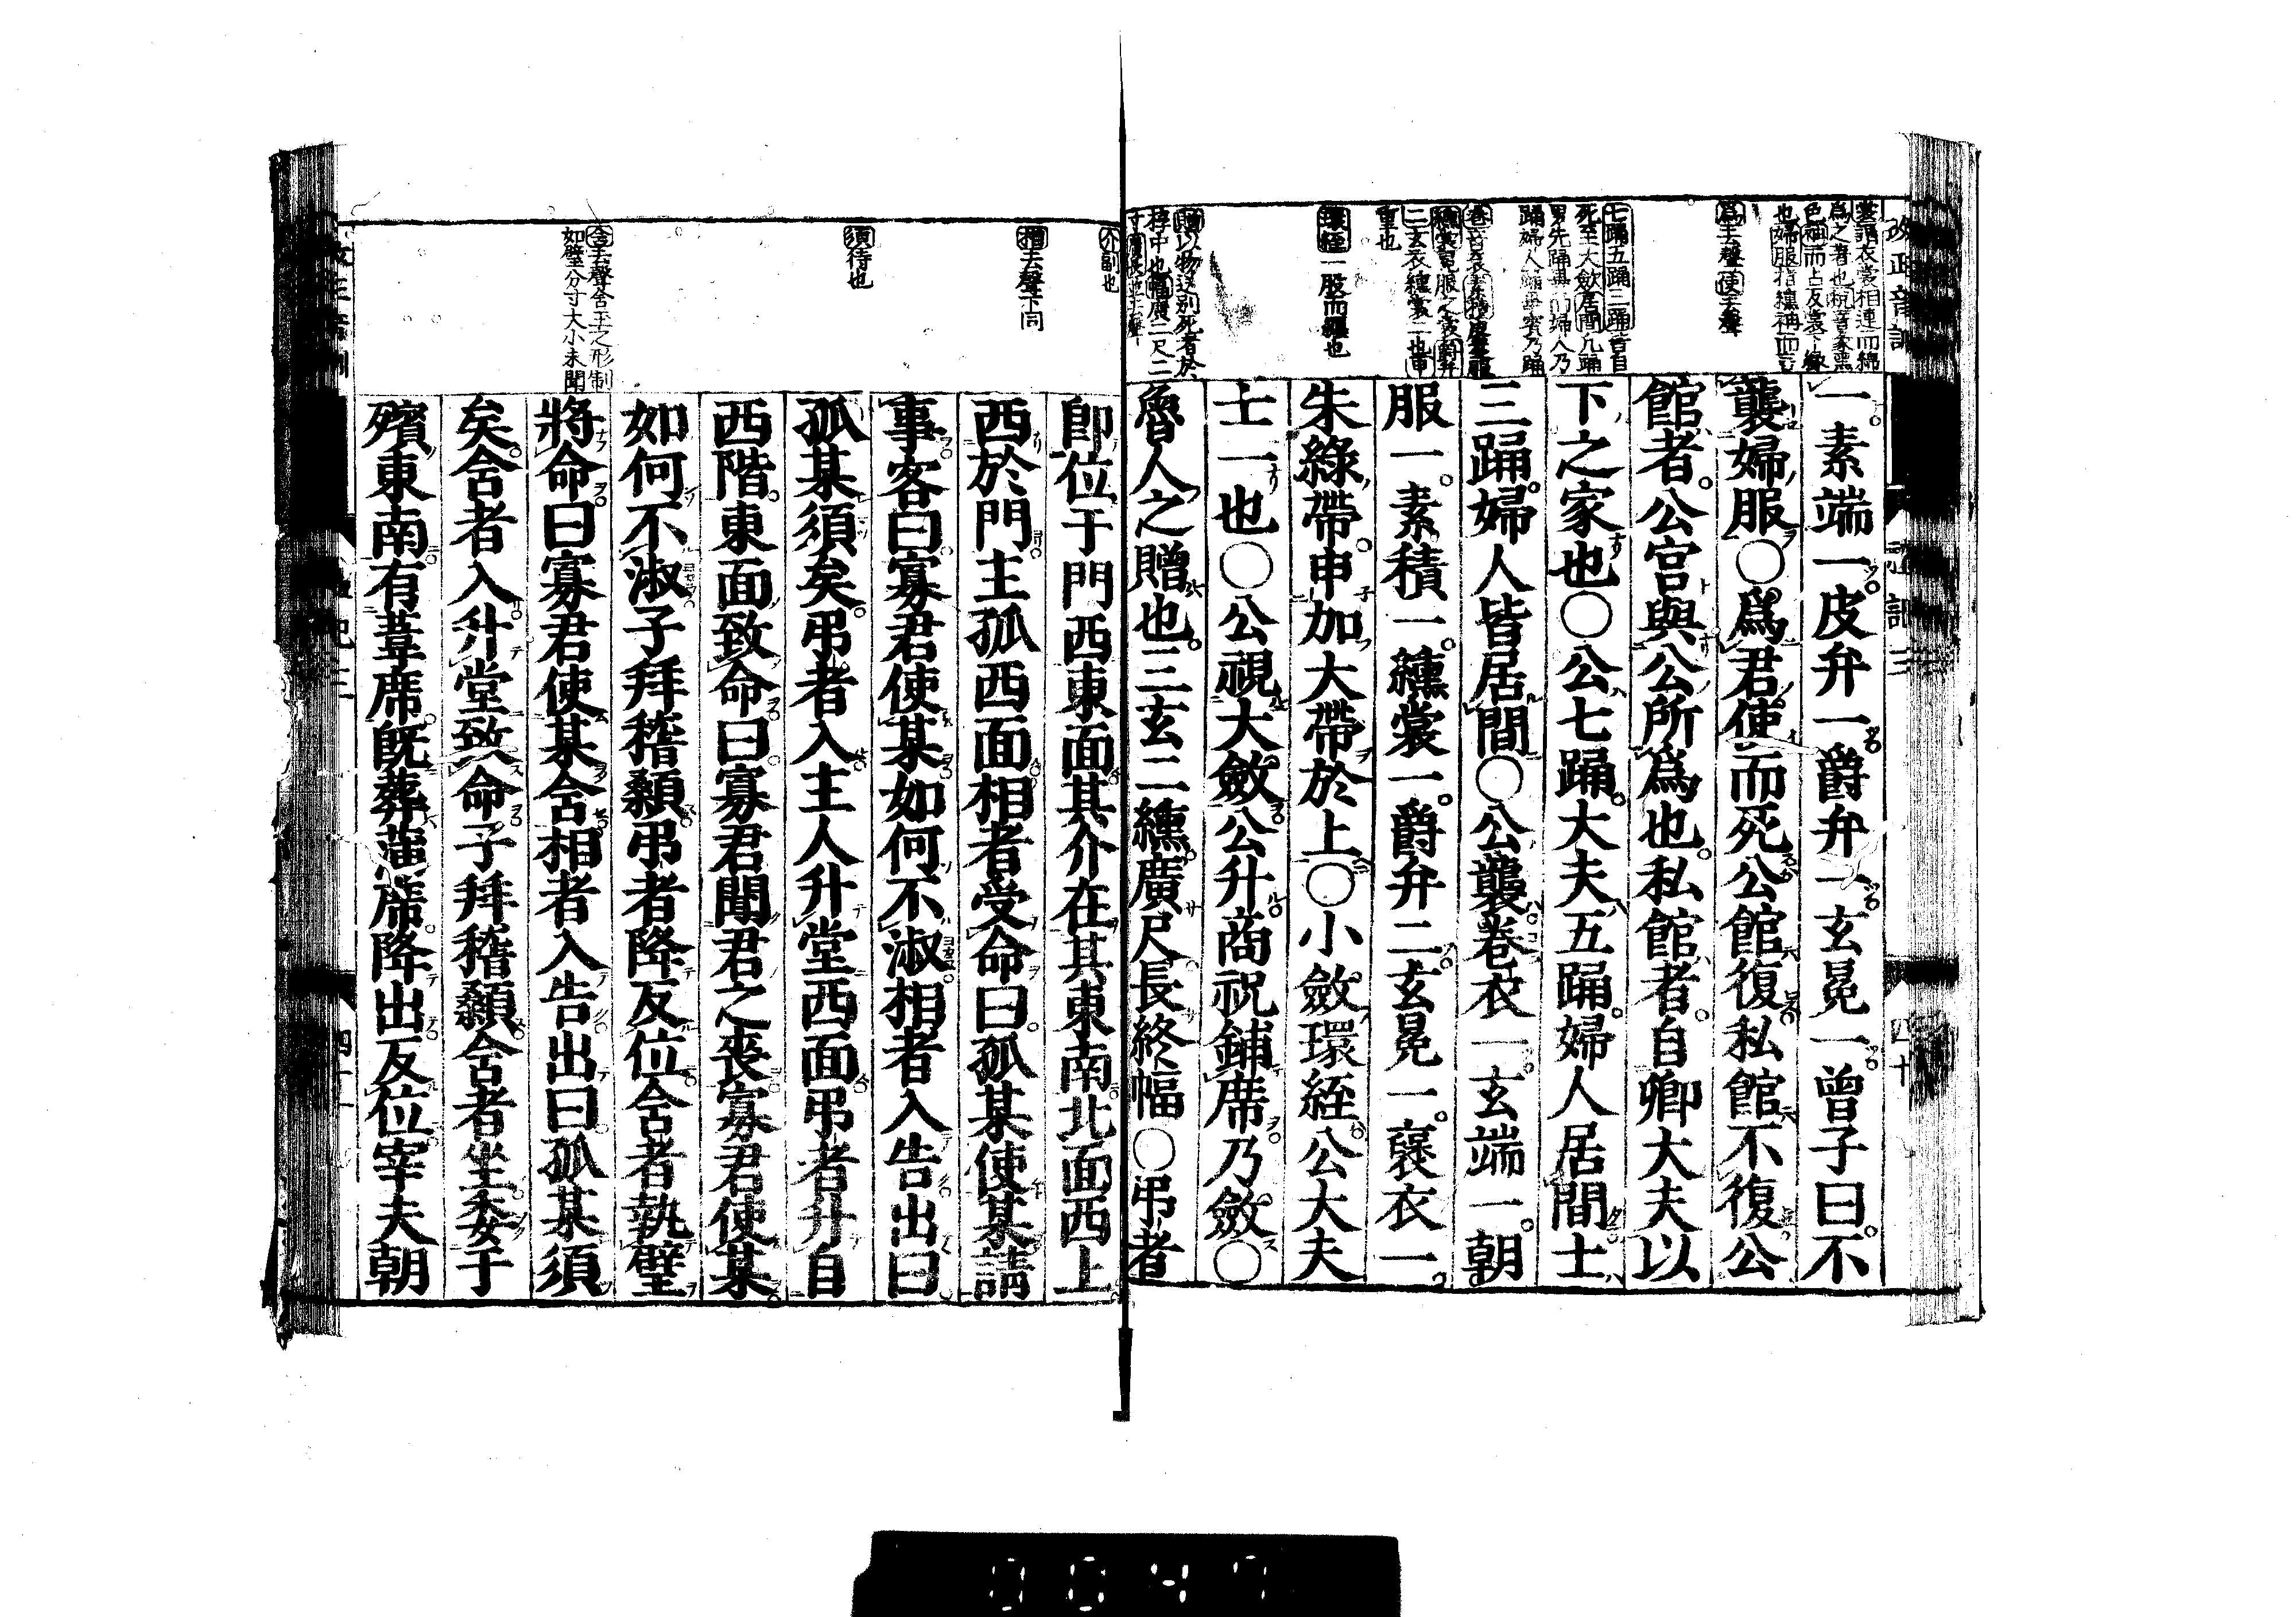 一素端一皮弁一爵弁一玄冕一曾子曰不
襲婦服○爲君使而死公館復私館不復公
館者公宮與公所爲也私館者自卿大夫以
下之家也○公七踊大夫五踊婦人居間士
三踊婦人皆居間○公襲卷衣一玄端一朝
服一素積一纁裳一爵弁二玄冕一襃衣一
朱綠帶申加大帶於上○小斂環絰公大夫
士一也○公視大斂公升商祝鋪席乃斂○
魯人之贈也三玄二纁廣尺長終幅○弔者
爲去聲使去聲
七踊五踊三踊皆自
死至大斂居間凡踊
男先踊
踊婦人
重也
環絰一股而纏也
贈以物送別死者於
椁中也幅廣二尺二
卽位于門西東面其介在其東南北面西上
西於門主孤西面相者受命曰孤某使某請
事客曰寡君使某如何不淑相者入告出曰
孤某須矣弔者入主人升堂西面弔者升自
西階東面致命曰寡君聞君之喪寡君使某
如何不淑子拜稽顙弔者降反位含者執璧
將命曰寡君使某含相者入告出曰孤某須
矣含者入升堂致命子拜稽顙含者坐委于
殯東南有葦席既葬蒲席降出反位宰夫朝
介副也
相去聲下同
須待也
含去聲含玉之形制
如璧分寸大小未聞
0047